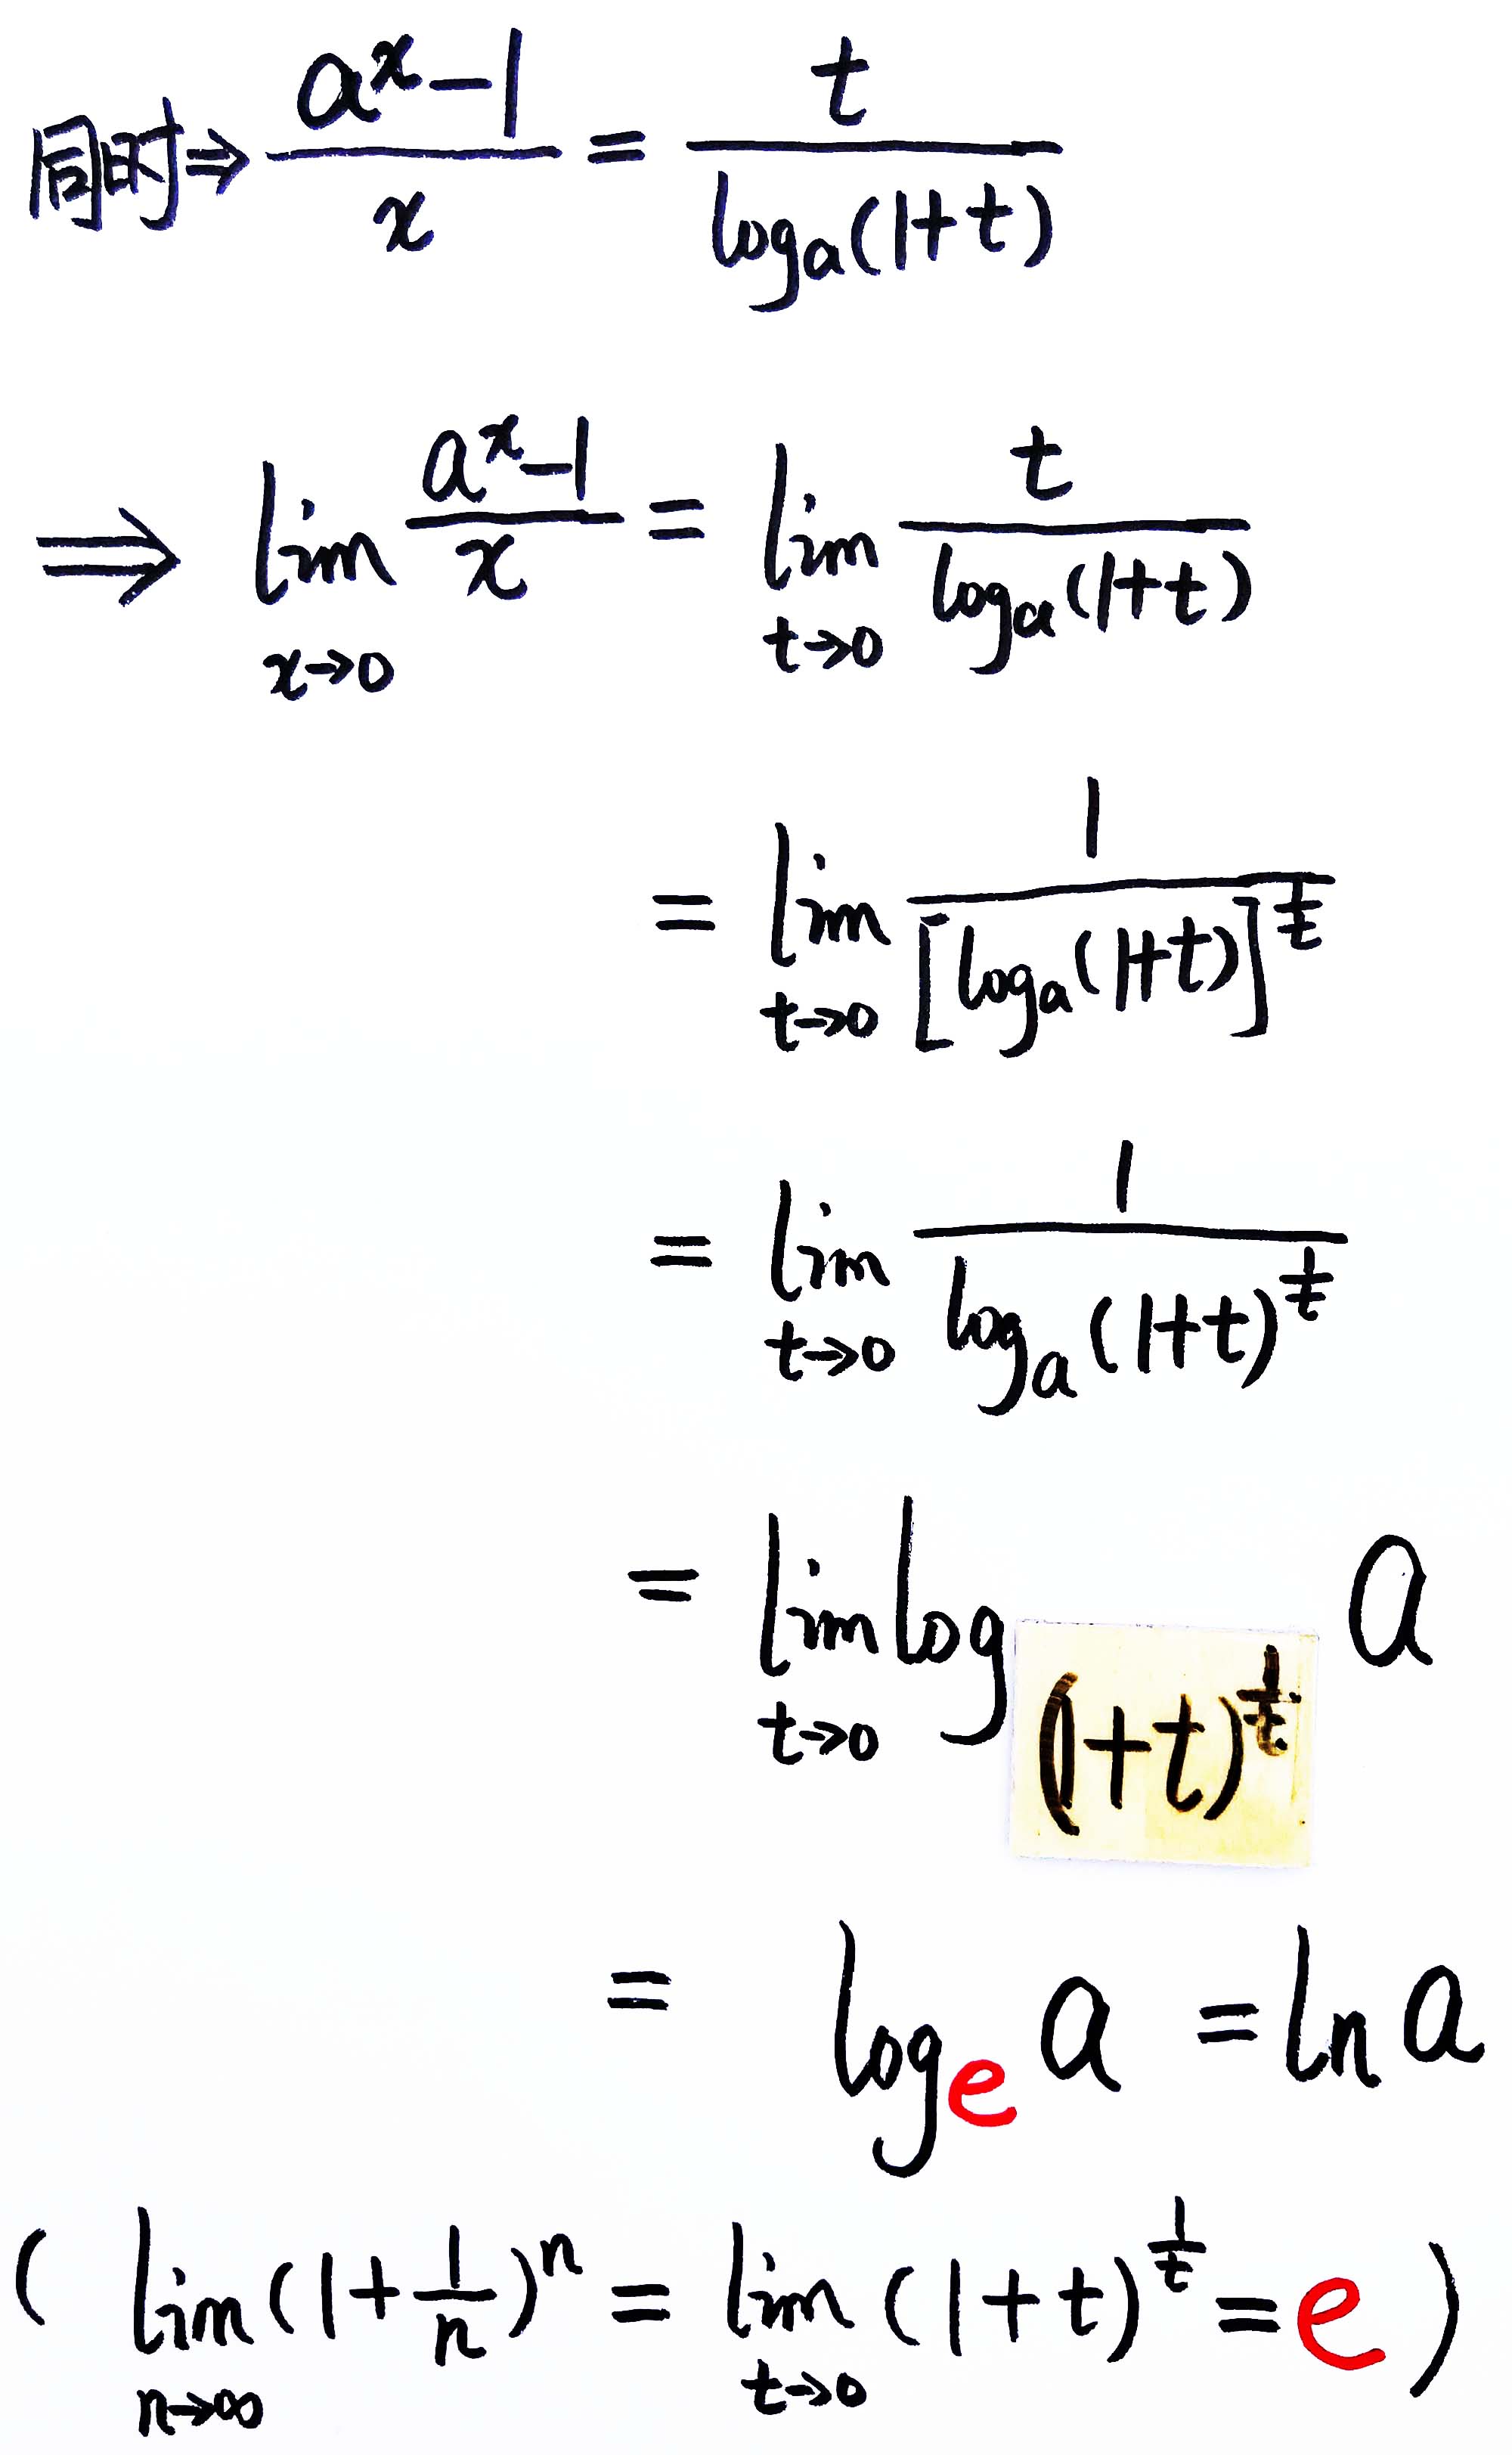 同时⇒ \frac{a^x-1}{x} = \frac{t}{\log_a(1+t)}
⇒ \lim_{x→0} \frac{a^x-1}{x} = \lim_{t→0} \frac{t}{\log_a(1+t)}
= \lim_{t→0} \frac{1}{[\log_a(1+t)]^{\frac{1}{t}}}
= \lim_{t→0} \frac{1}{\log_a(1+t)^{\frac{1}{t}}}
= \lim_{t→0} \log_{(1+t)^{\frac{1}{t}}} a
= \log_e a = \ln a
( \lim_{n→∞} (1+\frac{1}{n})^n = \lim_{t→0} (1+t)^{\frac{1}{t}} = e )